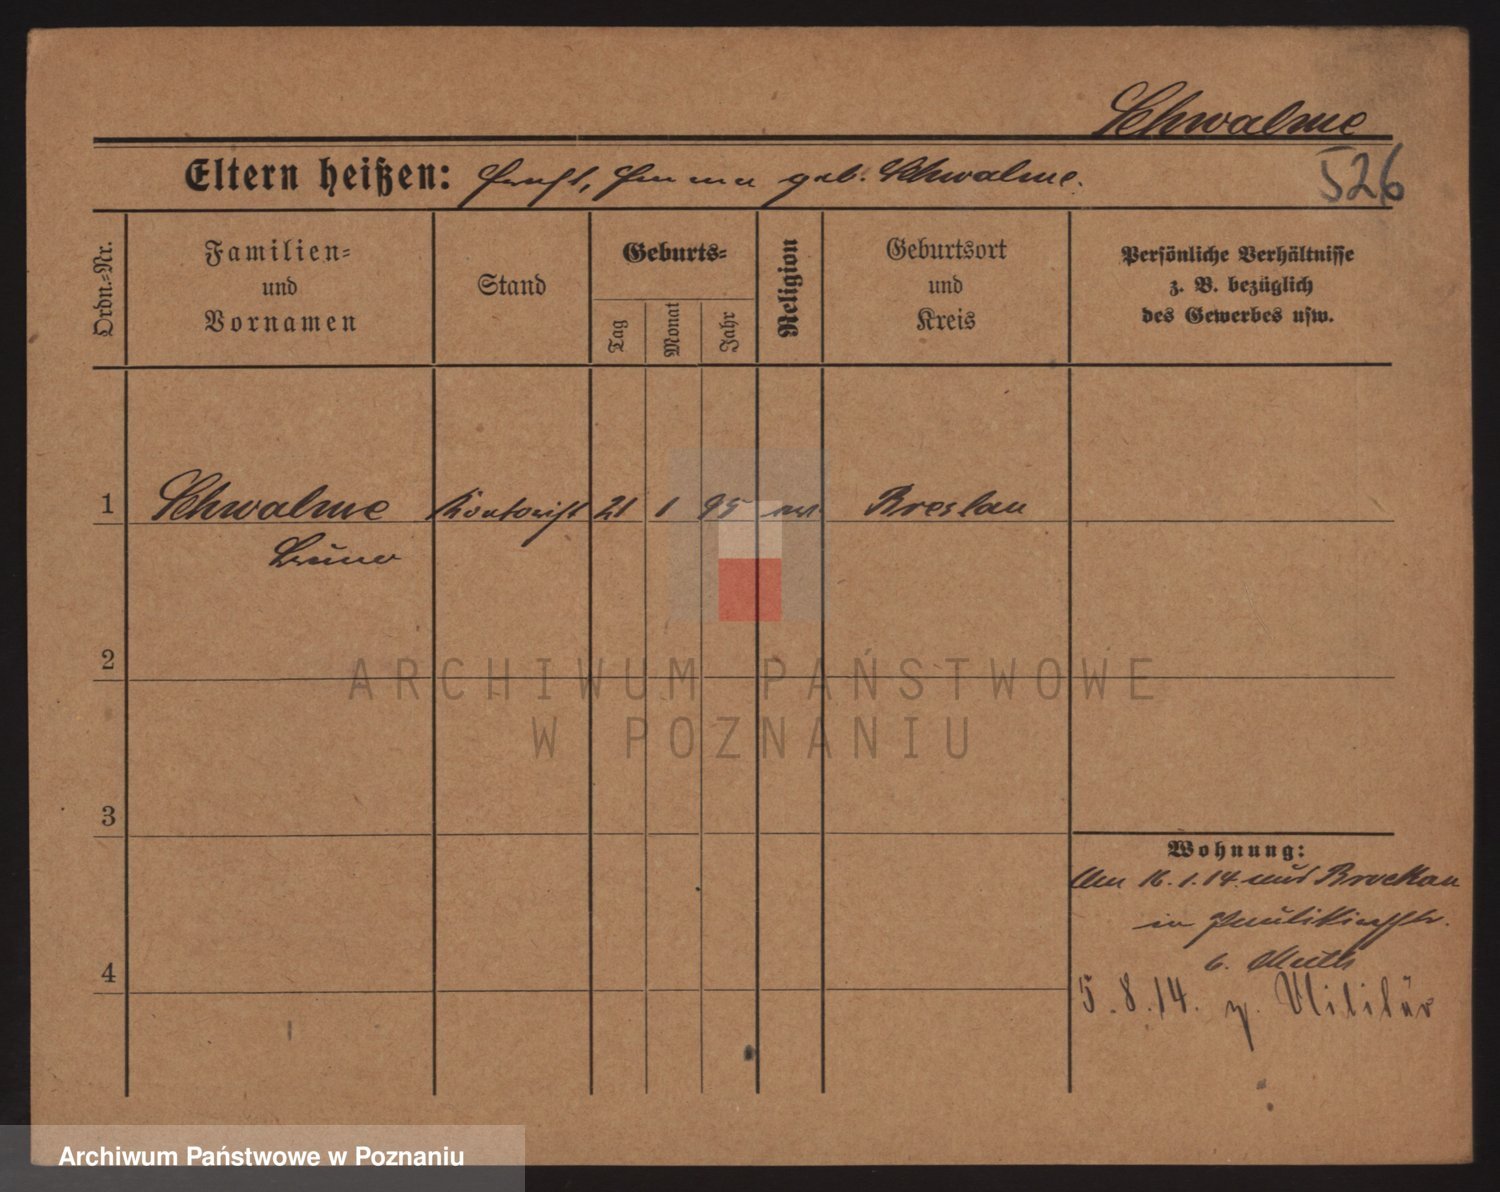 Schwalme
Eltern heißen: Ernst, Emma geb. Schwalme.
526
Ordn.-Nr.
Familien-
und
Vornamen
Stand
Geburts-
Tag
Monat
Jahr
Religion
Geburtsort
und
Kreis
Persönliche Verhältnisse
z. B. bezüglich
des Gewerbes usw.
1 Schwalme Kontorist 21 1 95 Breslau
Bruno
2
3
4
Wohnung:
Am 16.1.14 aus Brockau
in Paulikirchstr.
b. Muth
5.8.14. z. Militär
ARCHIWUM PAŃSTWOWE
W POZNANIU
Archiwum Państwowe w Poznaniu